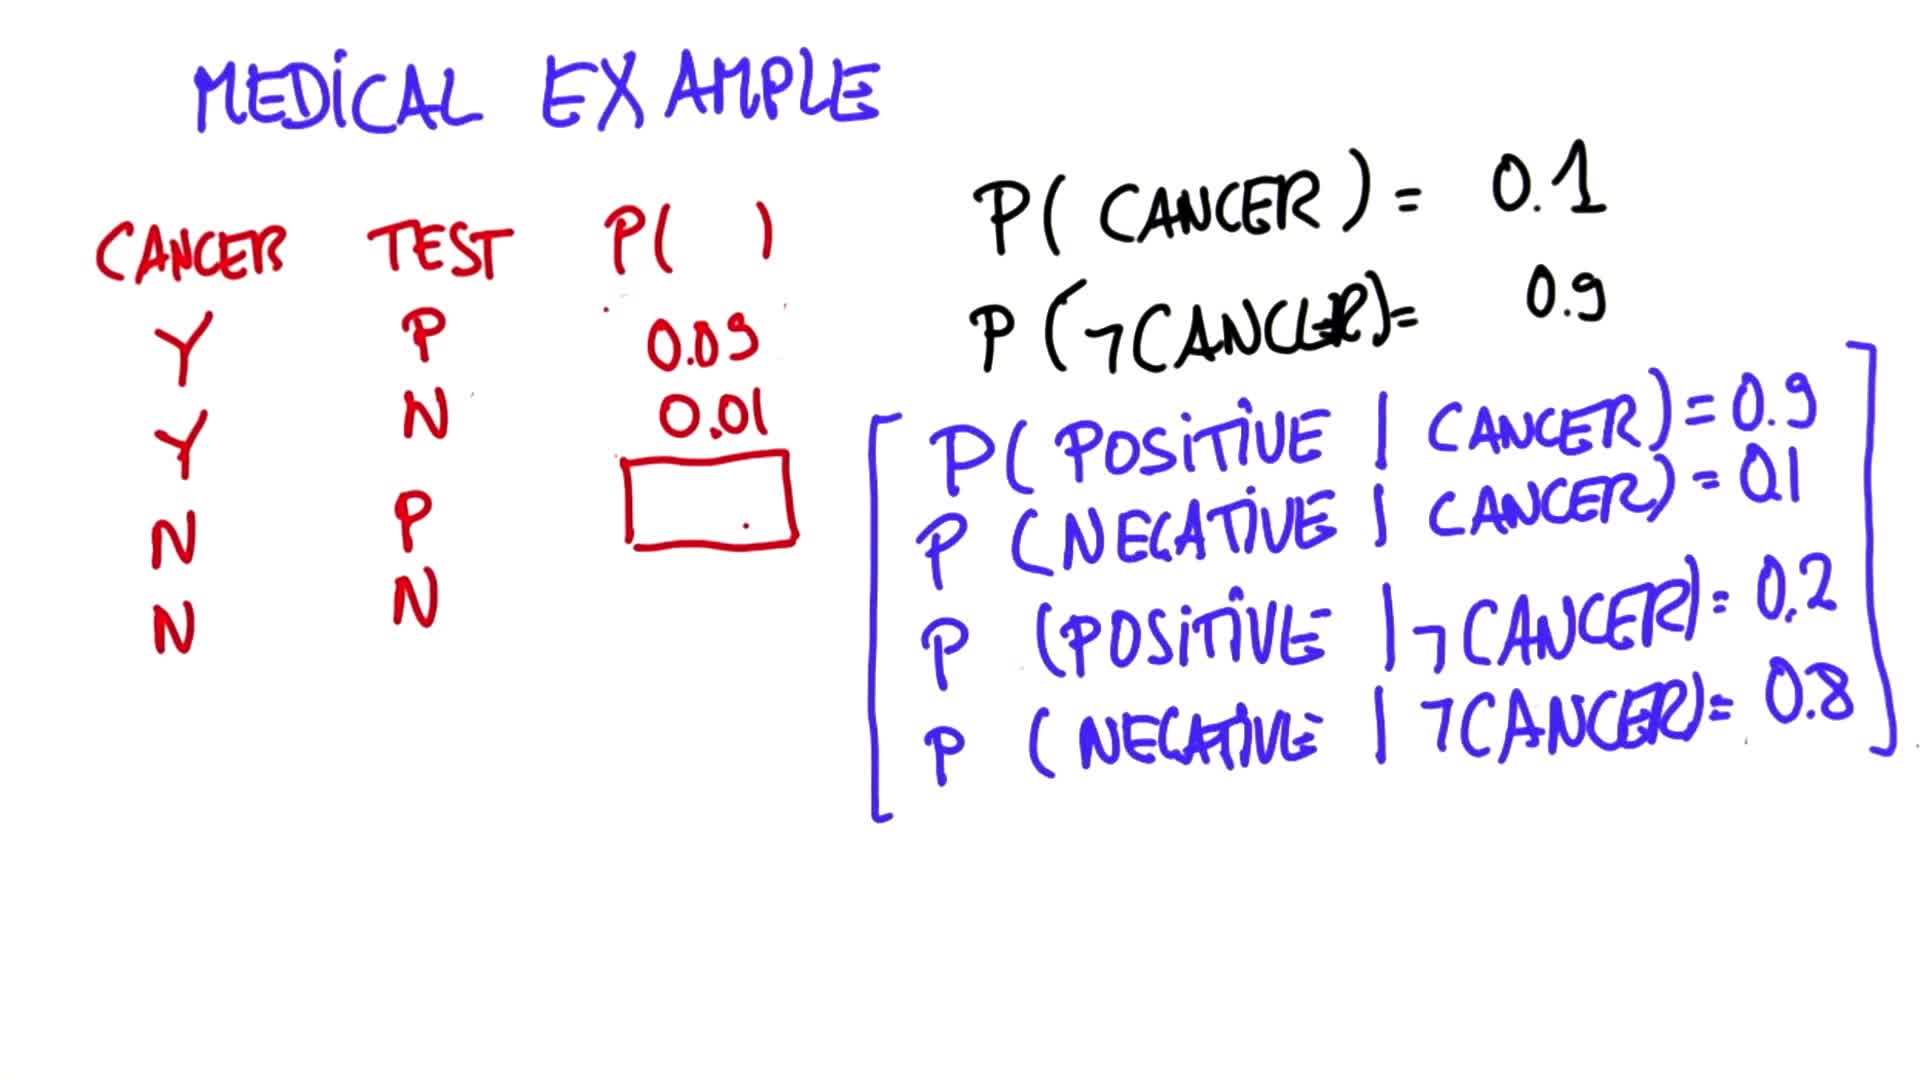 MEDICAL EXAMPLE
CANCER TEST P( )
Y P 0.09
Y N 0.01
N P
N N
P( CANCER ) = 0.1
P (¬CANCER)= 0.9
P( POSITIVE | CANCER) = 0.9
P (NEGATIVE | CANCER) = 0.1
P (POSITIVE | ¬CANCER) = 0.2
P (NEGATIVE | ¬CANCER) = 0.8